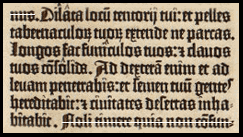 Dilata locū tentorij tui: et pelles
tabernaculoꝝ tuoꝝ extende ne parcas.
Longos fac funiculos tuos: ⁊ clauos
tuos cōsolida. Ad dexterā enim et ad
leuam penetrabis: et semen tuū gentes
hereditabit: ⁊ ciuitates desertas inha-
bitabit. Noli timere quia non confun-